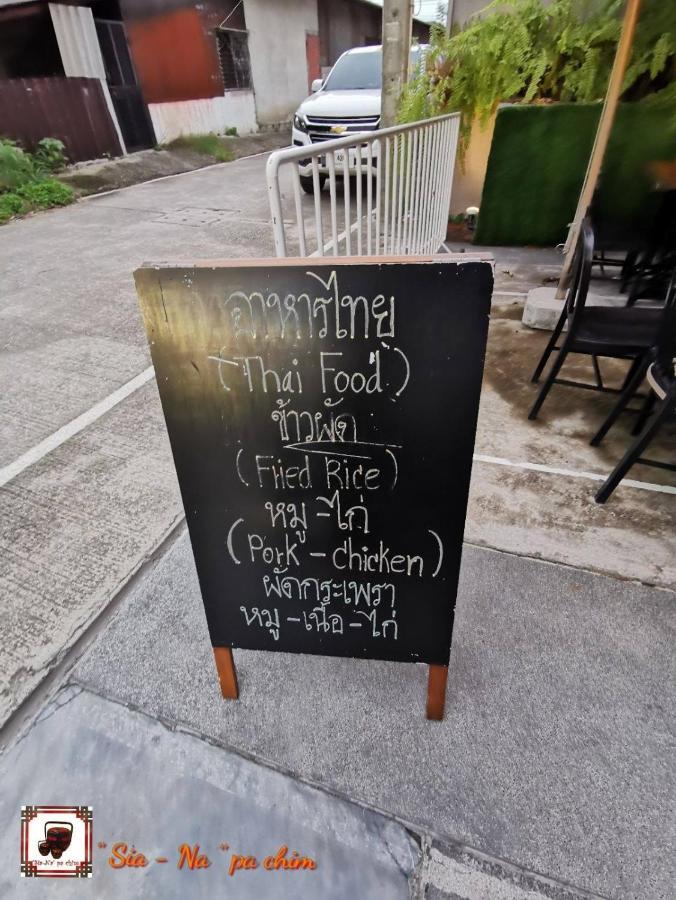 อาหารไทย
(Thai Food)
ข้าวผัด
(Fried Rice)
หมู-ไก่
(Pork - chicken)
ผัดกระเพรา
หมู-เนื้อ-ไก่
"Sia - Na "pa chim